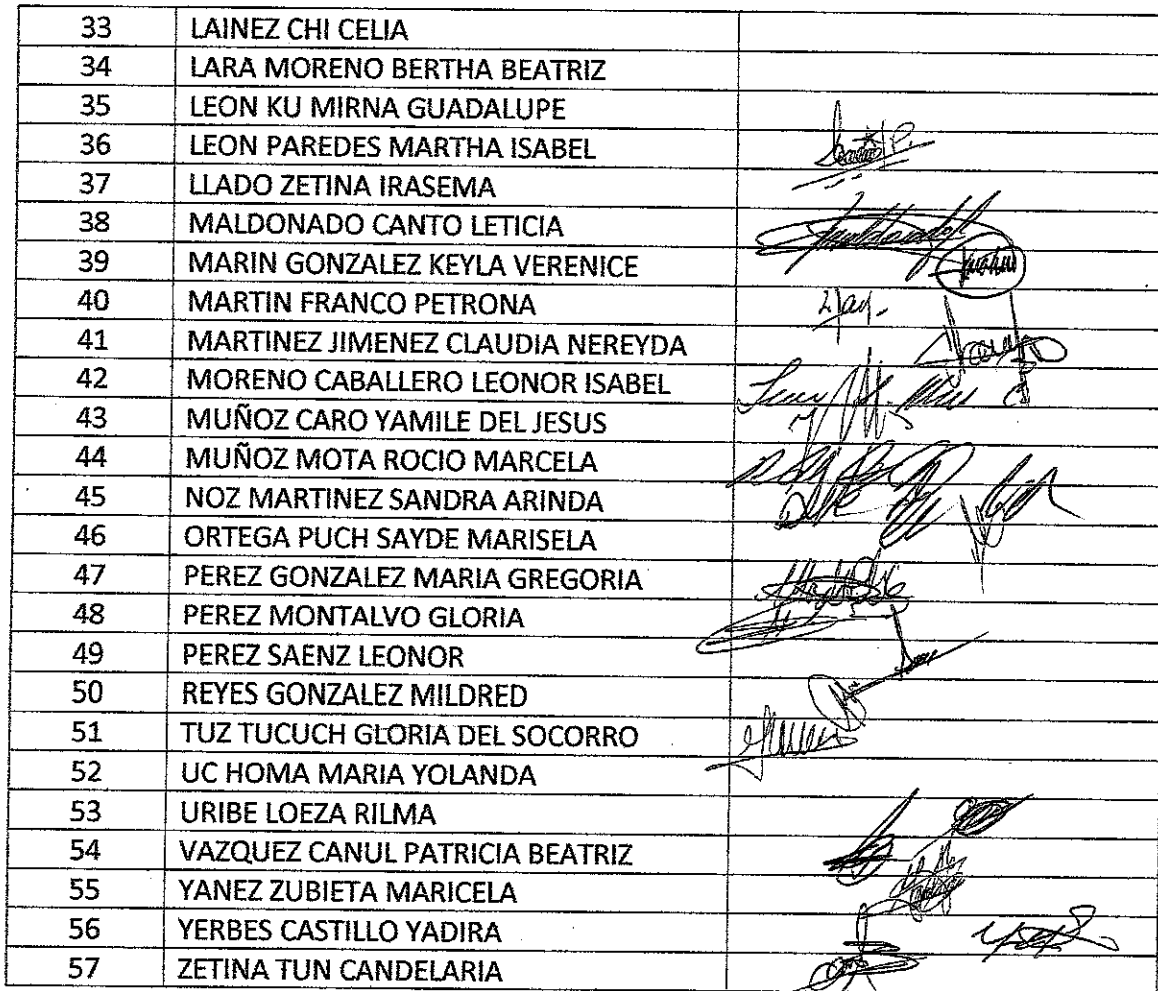 33 LAINEZ CHI CELIA
34 LARA MORENO BERTHA BEATRIZ
35 LEON KU MIRNA GUADALUPE
36 LEON PAREDES MARTHA ISABEL
37 LLADO ZETINA IRASEMA
38 MALDONADO CANTO LETICIA
39 MARIN GONZALEZ KEYLA VERENICE
40 MARTIN FRANCO PETRONA
41 MARTINEZ JIMENEZ CLAUDIA NEREYDA
42 MORENO CABALLERO LEONOR ISABEL
43 MUÑOZ CARO YAMILE DEL JESUS
44 MUÑOZ MOTA ROCIO MARCELA
45 NOZ MARTINEZ SANDRA ARINDA
46 ORTEGA PUCH SAYDE MARISELA
47 PEREZ GONZALEZ MARIA GREGORIA
48 PEREZ MONTALVO GLORIA
49 PEREZ SAENZ LEONOR
50 REYES GONZALEZ MILDRED
51 TUZ TUCUCH GLORIA DEL SOCORRO
52 UC HOMA MARIA YOLANDA
53 URIBE LOEZA RILMA
54 VAZQUEZ CANUL PATRICIA BEATRIZ
55 YANEZ ZUBIETA MARICELA
56 YERBES CASTILLO YADIRA
57 ZETINA TUN CANDELARIA